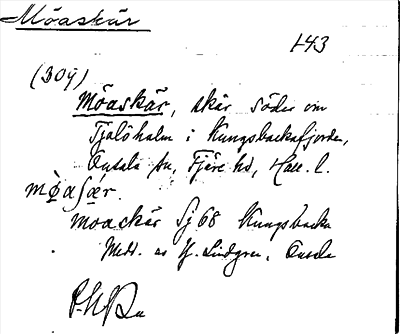 Möaskär
143
(309)
Möaskär, skär söder om
Tjolöholm i Kungsbackafjorden,
Onsala sn, Fjäre hd, Hall. l.
moaskär Sj 68 Kungsbacka
Medd. av H. Lindgren, Onsala